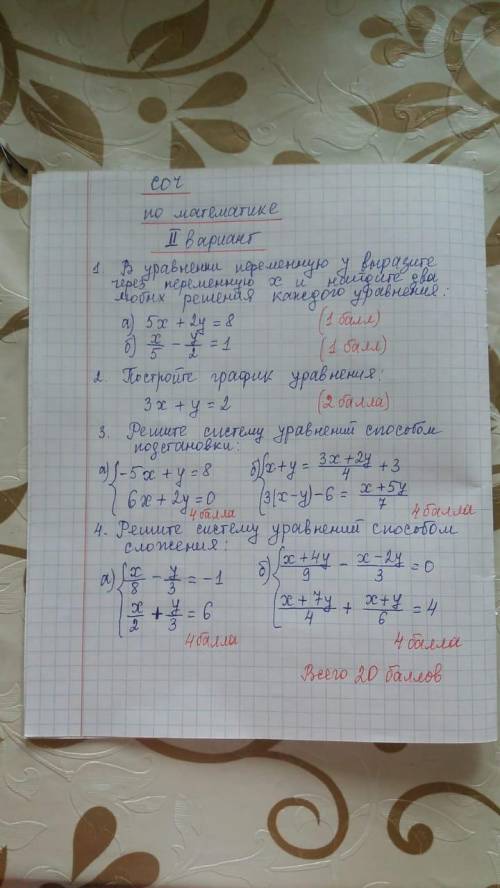 СОЧ
по математике
II вариант
1. В уравнении переменную y выразите
через переменную x и найдите два
любых решения каждого уравнения:
а) 5x + 2y = 8 (1 балл)
б) x/5 - y/2 = 1 (1 балл)
2. Постройте график уравнения:
3x + y = 2 (2 балла)
3. Решите систему уравнений способом
подстановки:
а) { -5x + y = 8 б) { x + y = (3x + 2y)/4 + 3
6x + 2y = 0 3(x - y) - 6 = (x + 5y)/7
4 балла 4 балла
4. Решите систему уравнений способом
сложения:
а) { x/8 - y/3 = -1 б) { (x + 4y)/9 - (x - 2y)/3 = 0
x/2 + y/3 = 6 (x + 7y)/4 + (x + y)/6 = 4
4 балла 4 балла
Всего 20 баллов